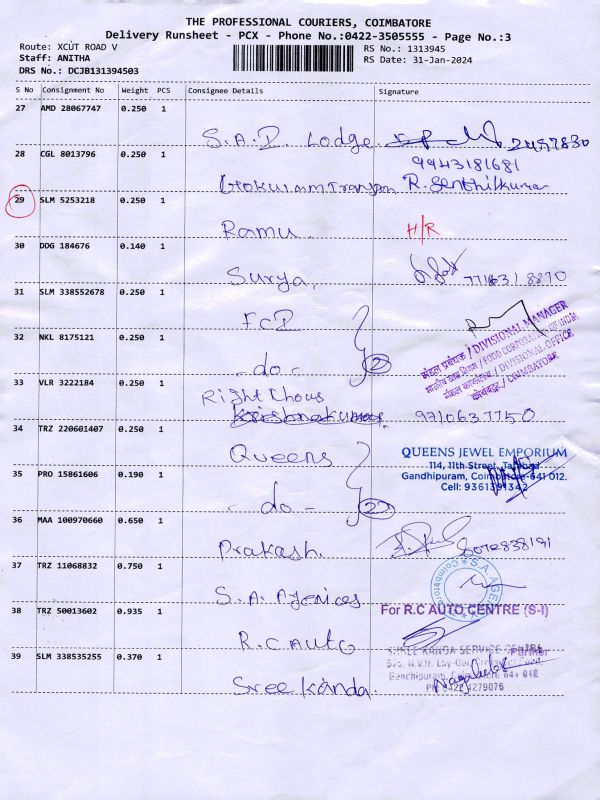 THE PROFESSIONAL COURIERS, COIMBATORE
Delivery Runsheet - PCX - Phone No.:0422-3505555 - Page No.:3
Route: XCUT ROAD V
Staff: ANITHA
DRS No.: DCJB131394503
RS No.: 1313945
RS Date: 31-Jan-2024
S No Consignment No Weight PCS Consignee Details Signature
27 AMD 28067747 0.250 1
S.A.P. Lodge
28 CGL 8013796 0.250 1
9943181681
R. Senthilkumar
29 SLM 5253218 0.250 1
Ramu. H/R
30 DDG 184676 0.140 1
Surya.
31 SLM 338552678 0.250 1
F.C.I
32 NKL 8175121 0.250 1
- do - 2
मंडल प्रबंधक / DIVISIONAL MANAGER
भारतीय खाद्य निगम / FOOD CORPORATION OF INDIA
मंडल कार्यालय / DIVISIONAL OFFICE
कोयंबटूर / COIMBATORE
33 VLR 3222184 0.250 1
Right Chous
Krishnakumar
34 TRZ 220601407 0.250 1
Queens
QUEENS JEWEL EMPORIUM
114, 11th Street,
Gandhipuram, Coimbatore-641 012.
Cell: 9361391342
35 PRO 15861606 0.190 1
- do - 2
36 MAA 100970660 0.650 1
Prakash. 8072838191
37 TRZ 11068832 0.750 1
S.A. Agenices
38 TRZ 50013602 0.935 1
For R.C AUTO CENTRE (S-I)
R.C Auto
Partner
39 SLM 338535255 0.370 1
SREE KANDA SERVICE CENTRE
Sree Kanda.